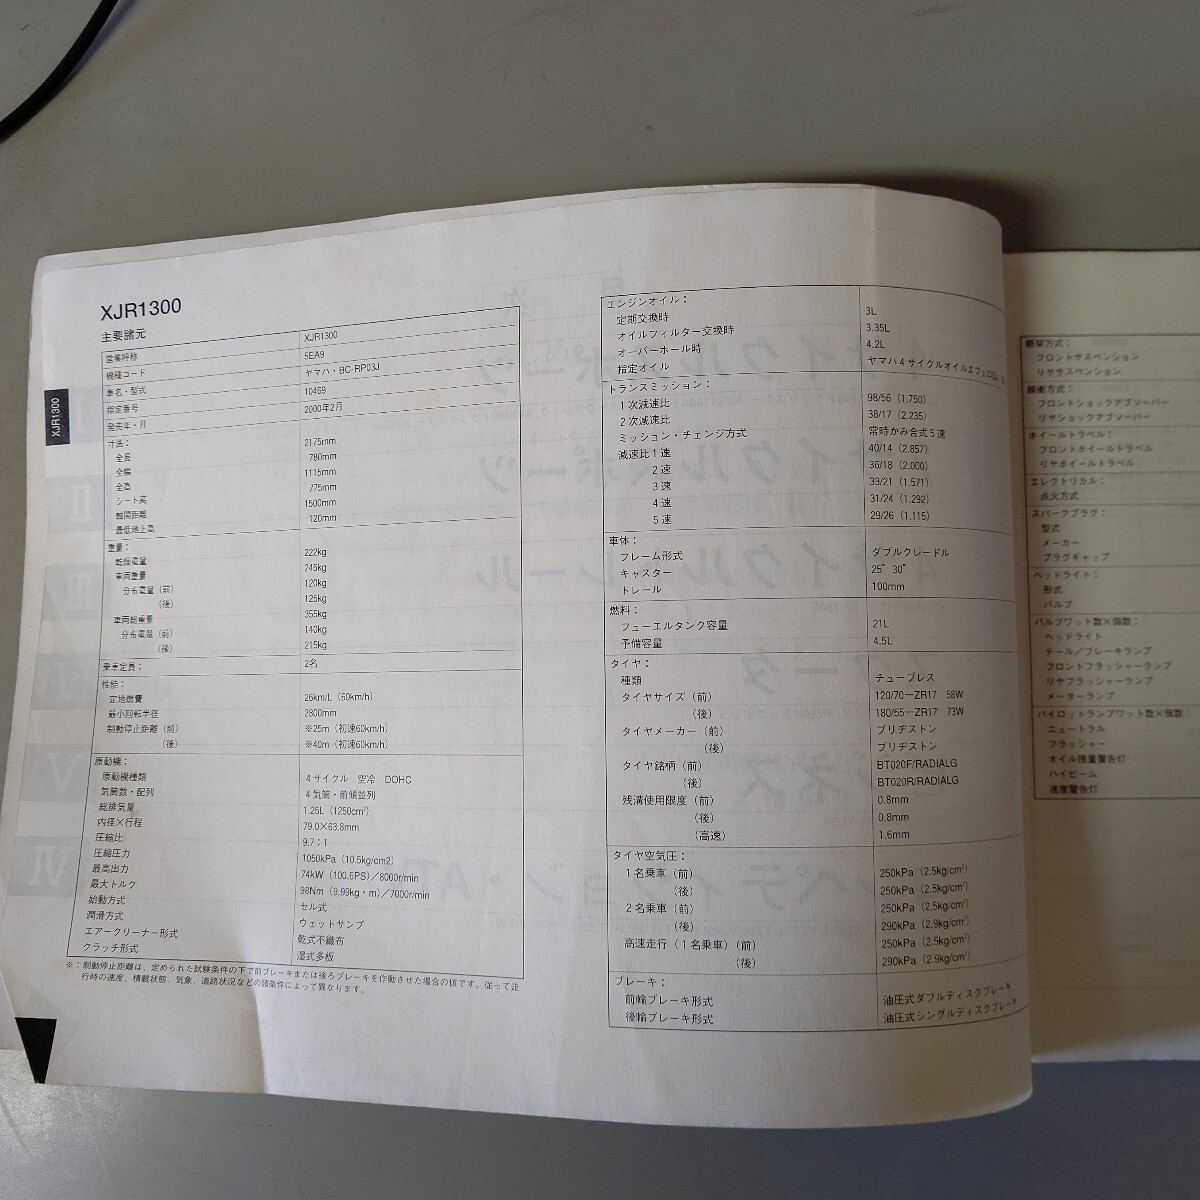 XJR1300
主要諸元
営業呼称 XJR1300
機種コード 5EA9
車名・型式 ヤマハ・BC-RP03J
指定番号 10469
発売年・月 2000年2月
寸法:
全長 2175mm
全幅 780mm
全高 1115mm
シート高 775mm
軸間距離 1500mm
最低地上高 120mm
重量:
乾燥重量 222kg
車両重量 245kg
分布重量(前) 120kg
(後) 125kg
車両総重量 355kg
分布重量(前) 140kg
(後) 215kg
乗車定員: 2名
性能:
定地燃費 26km/L(60km/h)
最小回転半径 2800mm
制動停止距離(前) ※25m(初速60km/h)
(後) ※40m(初速60km/h)
原動機:
原動機種類 4サイクル 空冷 DOHC
気筒数・配列 4気筒・前傾並列
総排気量 1.25L(1250cm³)
内径×行程 79.0×63.8mm
圧縮比 9.7:1
圧縮圧力 1050kPa(10.5kg/cm2)
最高出力 74kW(100.6PS)/8000r/min
最大トルク 98Nm(9.99kg・m)/7000r/min
始動方式 セル式
潤滑方式 ウェットサンプ
エアークリーナー形式 乾式不織布
クラッチ形式 湿式多板
※:制動停止距離は、定められた試験条件の下で前ブレーキまたは後ろブレーキを作動させた場合の値です。従って走
行時の速度、積載状態、気象、道路状況などの諸条件によって異なります。
XJR1300
エンジンオイル:
定期交換時 3L
オイルフィルター交換時 3.35L
オーバーホール時 4.2L
指定オイル ヤマハ4サイクルオイルエフェロ
トランスミッション:
1次減速比 98/56(1.750)
2次減速比 38/17(2.235)
ミッション・チェンジ方式 常時かみ合式5速
減速比1速 40/14(2.857)
2速 36/18(2.000)
3速 33/21(1.571)
4速 31/24(1.292)
5速 29/26(1.115)
車体:
フレーム形式 ダブルクレードル
キャスター 25°30°
トレール 100mm
燃料:
フューエルタンク容量 21L
予備容量 4.5L
タイヤ:
種類 チューブレス
タイヤサイズ(前) 120/70-ZR17 58W
(後) 180/55-ZR17 73W
タイヤメーカー(前) ブリヂストン
(後) ブリヂストン
タイヤ銘柄(前) BT020F/RADIALG
(後) BT020R/RADIALG
残溝使用限度(前) 0.8mm
(後) 0.8mm
(高速) 1.6mm
タイヤ空気圧:
1名乗車(前) 250kPa(2.5kg/cm²)
(後) 250kPa(2.5kg/cm²)
2名乗車(前) 250kPa(2.5kg/cm²)
(後) 290kPa(2.9kg/cm²)
高速走行(1名乗車)(前) 250kPa(2.5kg/cm²)
(後) 290kPa(2.9kg/cm²)
ブレーキ:
前輪ブレーキ形式 油圧式ダブルディスクブレーキ
後輪ブレーキ形式 油圧式シングルディスクブレーキ
懸架方式:
フロントサスペンション
リヤサスペンション
緩衝方式:
フロントショックアブソーバー
リヤショックアブソーバー
ホイールトラベル:
フロントホイールトラベル
リヤホイールトラベル
エレクトリカル:
点火方式
スパークプラグ:
型式
メーカー
プラグギャップ
ヘッドライト:
形式
バルブ
バルブワット数×個数:
ヘッドライト
テール/ブレーキランプ
フロントフラッシャーランプ
リヤフラッシャーランプ
メーターランプ
パイロットランプワット数×個数:
ニュートラル
フラッシャー
オイル残量警告灯
ハイビーム
速度警告灯